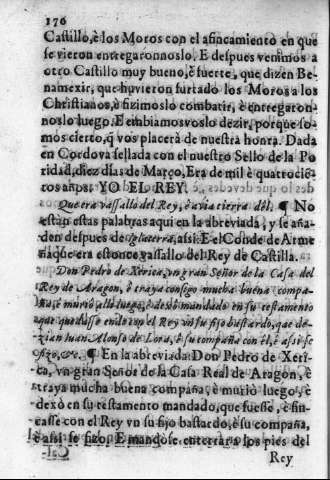 170
Castillo, è los Moros con el afincamiento en que
se vieron entregaronnoslo. E despues venimos a
otro Castillo muy bueno, è fuerte, que dizen Be-
namexir, que huvieron furtado los Moros a los
Christianos, è fizimoslo combatir, è entregaron-
noslo luego. E embiamosvoslo dezir, porque so-
mos cierto, q̃ vos placerà de nuestra honra. Dada
en Cordova sellada con el nuestro Sello de la Po
ridad, diez dias de Março, Era de mil è quatrocië
tos años. YO EL REY.
Que era vassallo del Rey, è avia tierra dèl. ¶ No
estàn estas palabras aqui en la abreviada, y se aña-
den despues de Iglaterra, assi: E el Conde de Arme
ñaque era estonce vassallo del Rey de Castilla.
Don Pedro de Xerica, vn gran Señor de la Casa del
Rey de Aragon, è traya consigo mucha buena compa-
ña, è muriò allì luego, è dexò mandado en su testamento
que quedasse en lo con el Rey vn su fijo bastardo, que de-
zian Iuan Alonso de Lora, è su compaña con èl, è assi se
fizo, &c. ¶ En la abreviada Don Pedro de Xeri-
ca, vn gran Señor de la Casa Real de Aragon, è
traya mucha buena compaña, è muriò luego, è
dexò en su testamento mandado, que fuesse, è fin-
casse con el Rey vn su fijo bastardo, è su compaña,
è assi se fizo. E mandòse enterrar a los pies del
Rey